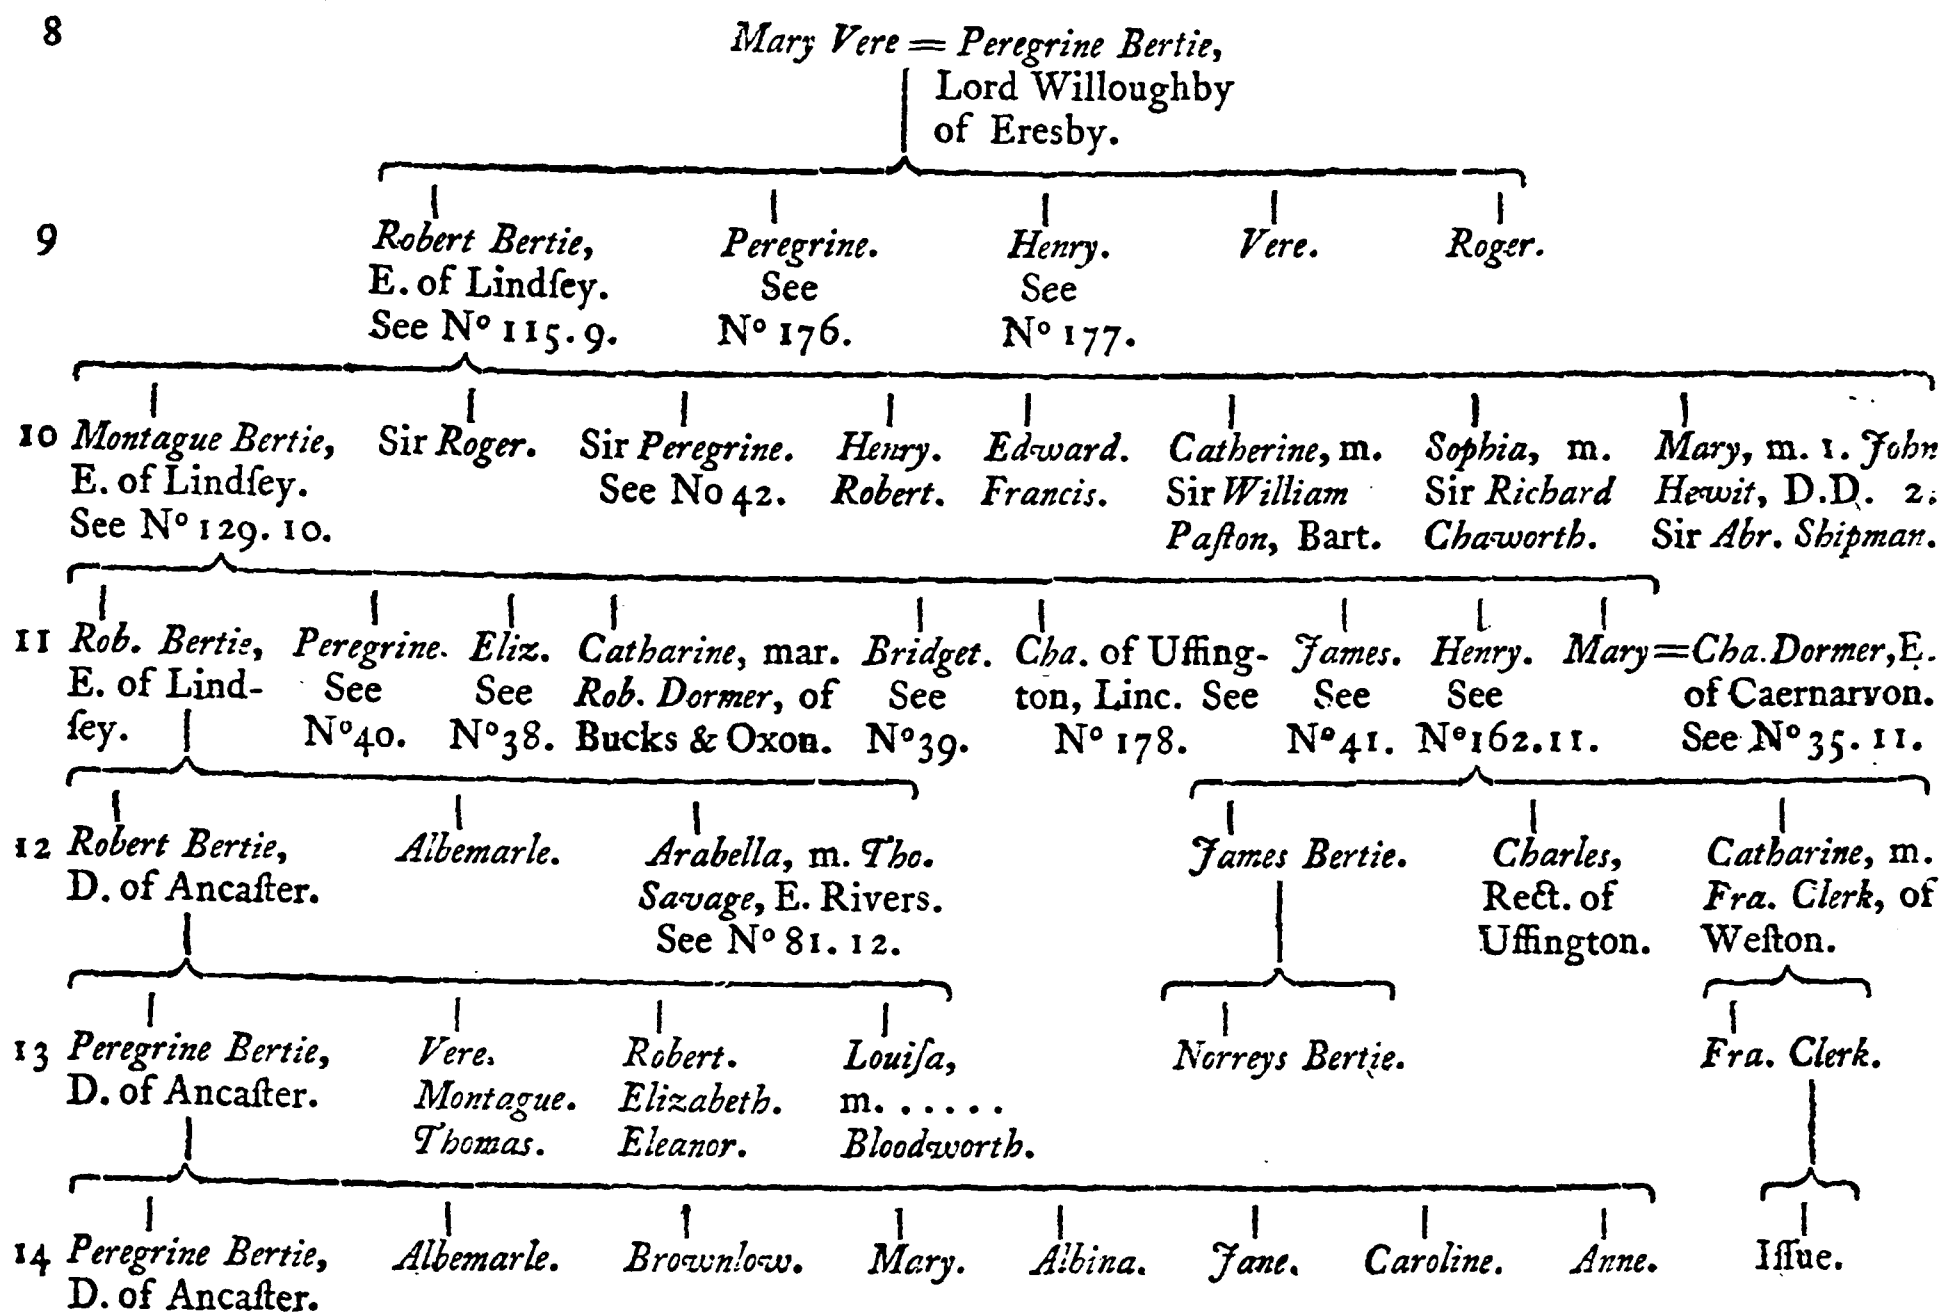 8
Mary Vere = Peregrine Bertie,
Lord Willoughby
of Eresby.
9
Robert Bertie,
E. of Lindſey.
See Nº 115. 9.
Peregrine.
See
Nº 176.
Henry.
See
Nº 177.
Vere.
Roger.
10
Montague Bertie,
E. of Lindſey.
See Nº 129. 10.
Sir Roger.
Sir Peregrine.
See No 42.
Henry.
Robert.
Edward.
Francis.
Catherine, m.
Sir William
Paſton, Bart.
Sophia, m.
Sir Richard
Chaworth.
Mary, m. 1. John
Hewit, D.D. 2.
Sir Abr. Shipman.
11
Rob. Bertie,
E. of Lind-
ſey.
Peregrine.
See
Nº 40.
Eliz.
See
Nº 38.
Catharine, mar.
Rob. Dormer, of
Bucks & Oxon.
Bridget.
See
Nº 39.
Cha. of Uffing-
ton, Linc. See
Nº 178.
James.
See
Nº 41.
Henry.
See
Nº 162. 11.
Mary = Cha. Dormer, E.
of Caernarvon.
See Nº 35. 11.
12
Robert Bertie,
D. of Ancaſter.
Albemarle.
Arabella, m. Tho.
Savage, E. Rivers.
See Nº 81. 12.
James Bertie.
Charles,
Rect. of
Uffington.
Catharine, m.
Fra. Clerk, of
Weſton.
13
Peregrine Bertie,
D. of Ancaſter.
Vere.
Montague.
Thomas.
Robert.
Elizabeth.
Eleanor.
Louiſa,
m. . . . . . .
Bloodworth.
Norreys Bertie.
Fra. Clerk.
14
Peregrine Bertie,
D. of Ancaſter.
Albemarle.
Brownlow.
Mary.
Albina.
Jane.
Caroline.
Anne.
Iſſue.